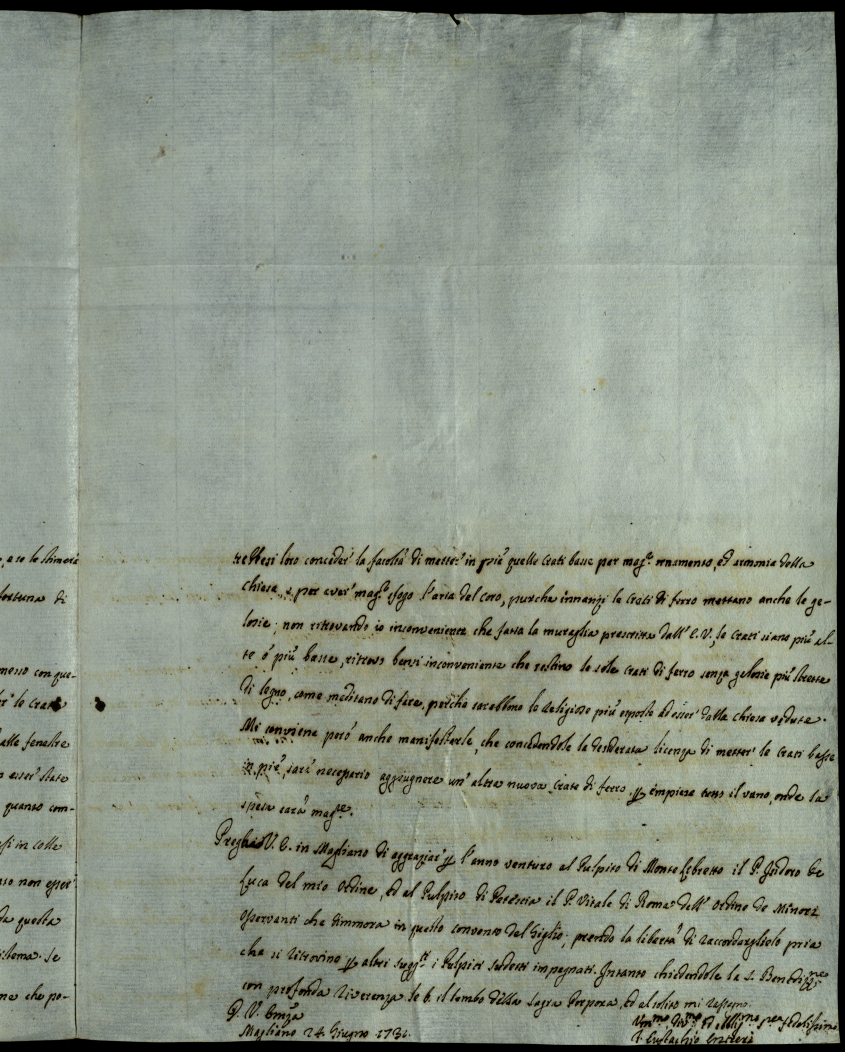 , e se lo stimerà
fortuna di
messo con que-
le Crati
alle fenestre
esser' state
quanto com-
si in colle
non esser'
da questa
sistema. Se
ne che po-
loro conceder' la facoltà di metter' in più quelle Crati basse per magre. ornamento, ed armonia della
chiesa, e per aver' magre. sfogo l'aria del Coro, purche innanzi le Crati di ferro mettano anche le ge-
losie; non ritrovando io inconveniente che fatta la muraglia prescritta dall' E. V., le Crati siano più al-
te ò più basse, ritrovo bensì inconveniente che restino le sole Crati di ferro senza gelosie più strette
di legno, come meditano di fare, perche sarebbono le Religiose più esposte ad esser' dalla chiesa vedute.
Mi conviene però anche manifestarle, che concedendole la desiderata licenza di metter' le Crati basse
in più, sarà necessario aggiugnere un' altra nuova Crate di ferro, per empiere tutto il vano, onde la
spesa sarà magre.
Preghai V. E. in Magliano di aggraziar' per l'anno venturo al Pulpito di Monte libretto il P. Isidoro
Luca del mio Ordine, ed al Pulpito di il P. Vitale di Roma dell' Ordine de Minori
Osservanti che dimora in questo convento del Giglio; prendo la libertà di raccordarglielo pria
che si ritrovino per altri soggtti i Pulpiti sudetti impegnati. Intanto chiedendole la S. Bendizne
con profonda riverenza le b. il lembo della Sagra Porpora, ed al solito mi rassegno.
D. V. Emza
Magliano 24. Giugno 1732.
fedelissimo
F. Eustachio